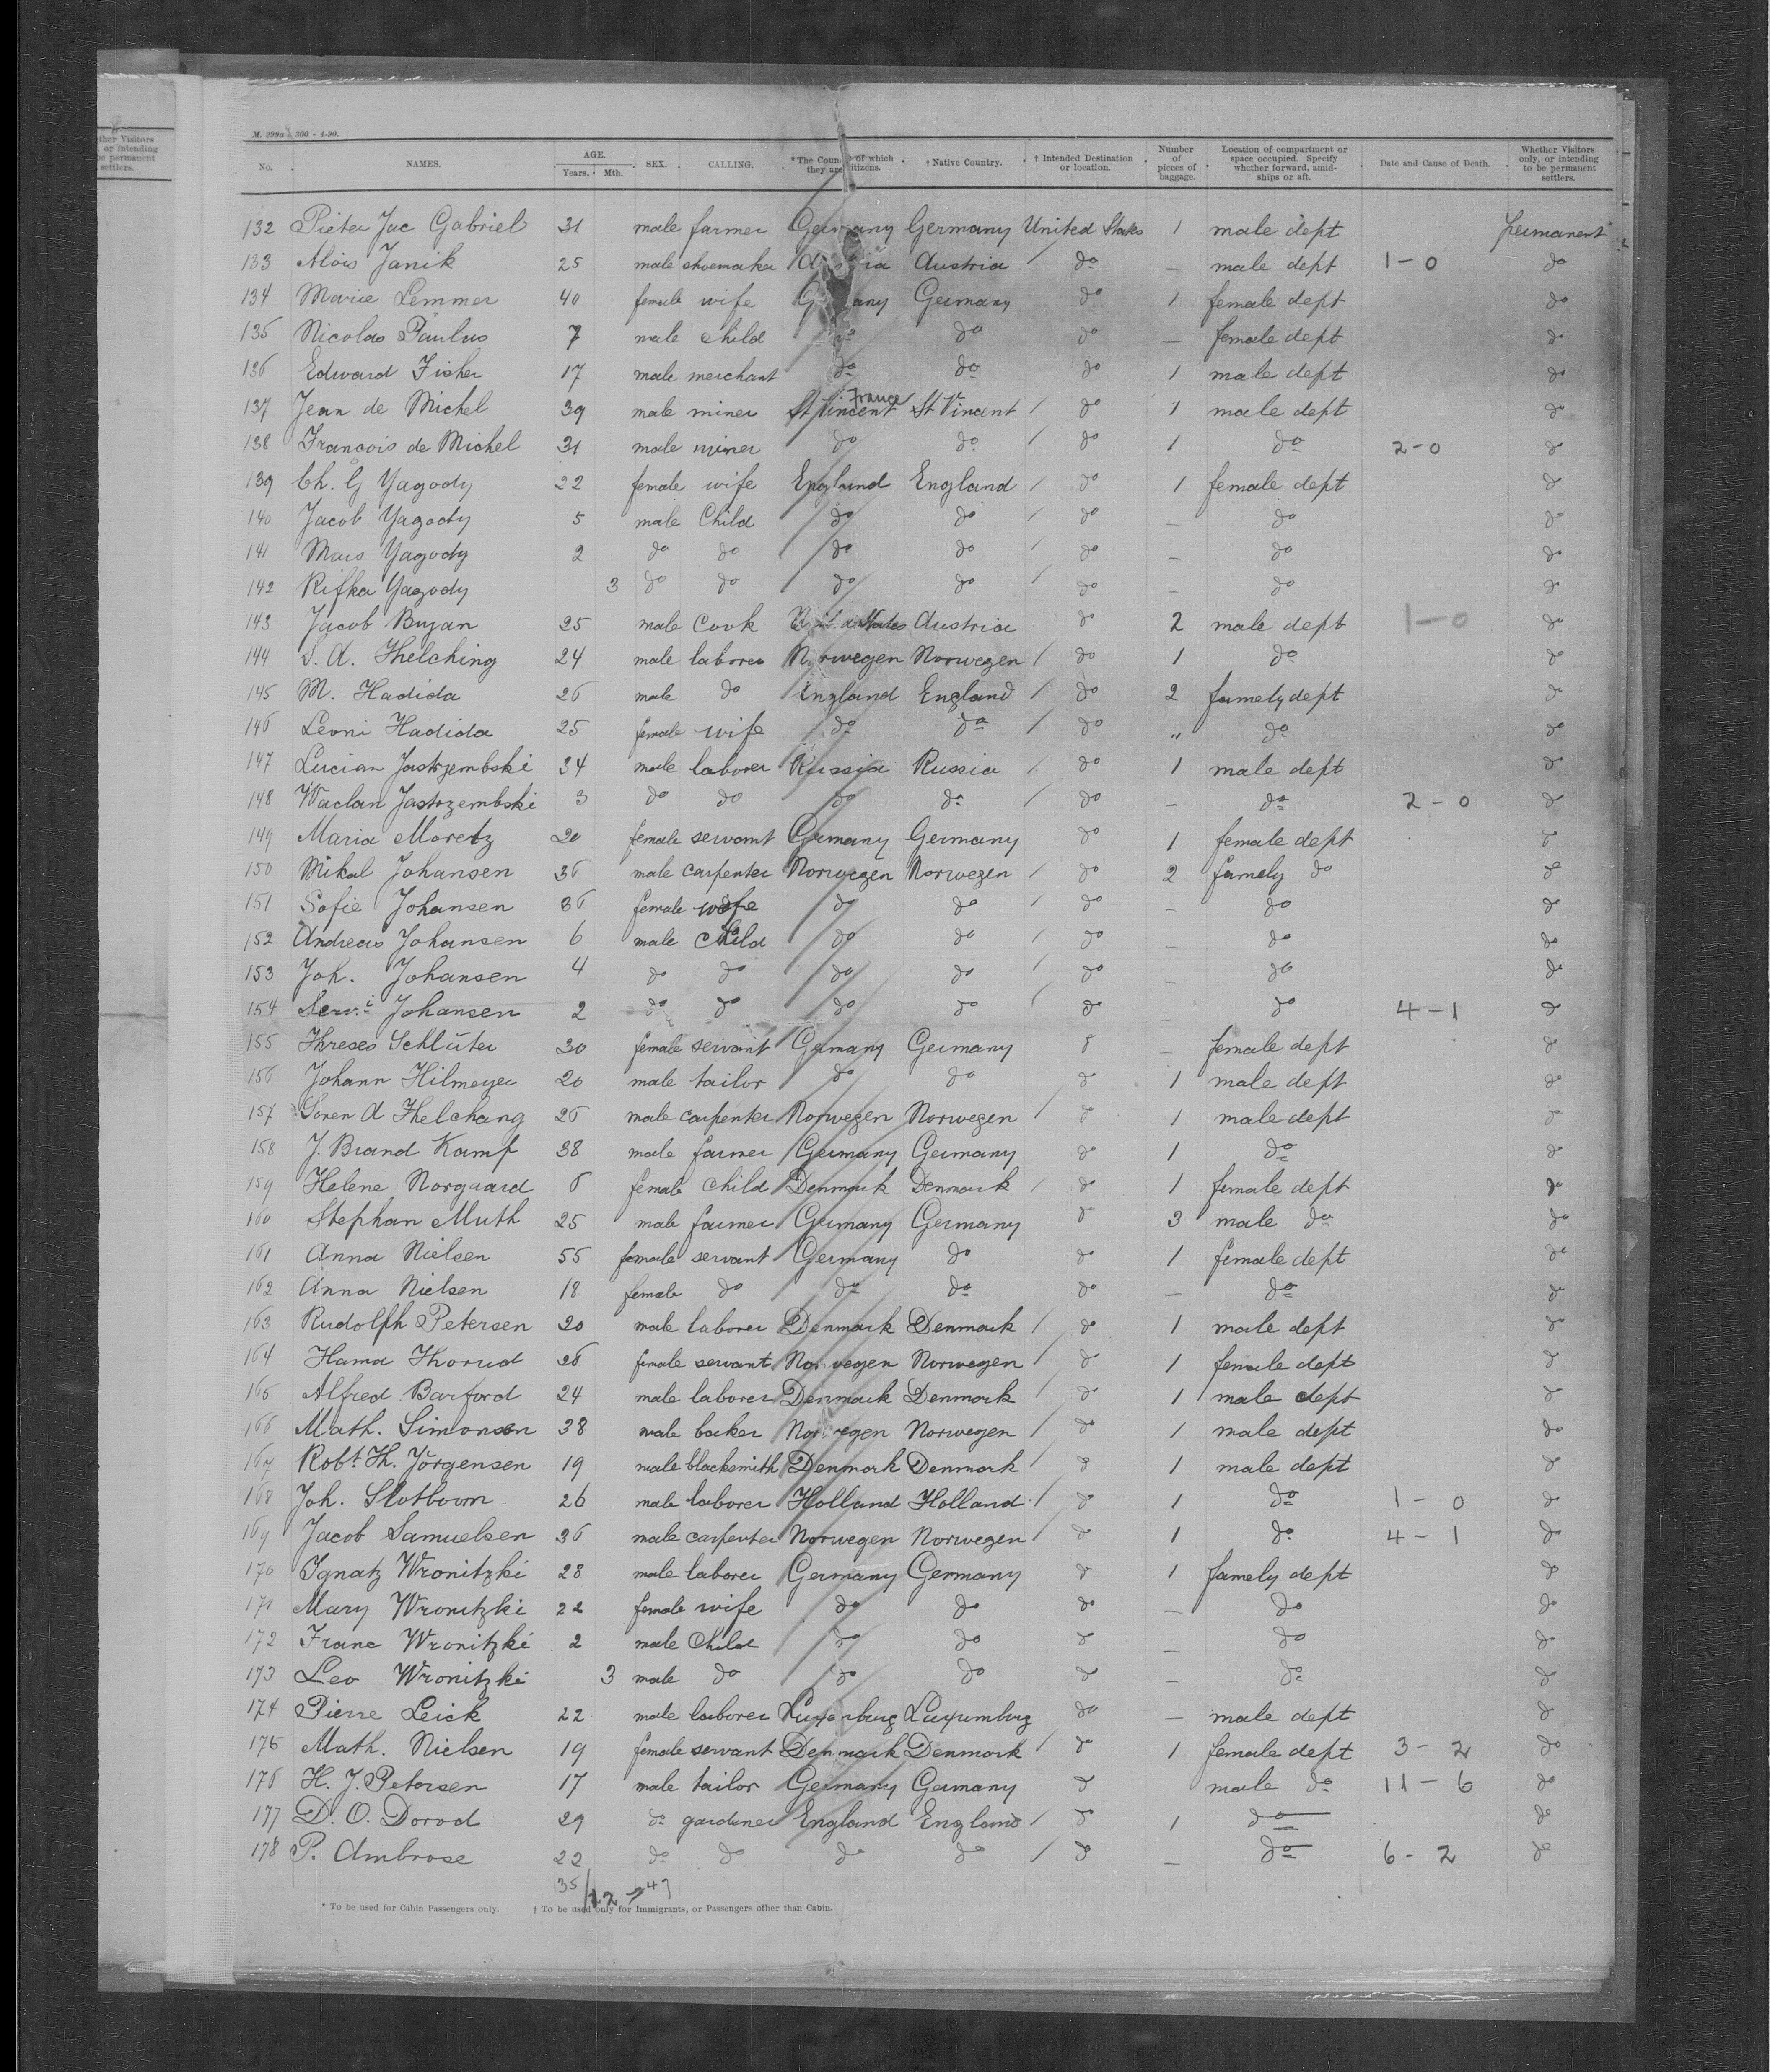 ther Visitors
, or intending
be permanent
settlers.
M. 299a 300 - 4-90.
No. NAMES. AGE. Years. Mth. SEX. CALLING. * The Country of which they are citizens. † Native Country. † Intended Destination or location. Number of pieces of baggage. Location of compartment or space occupied. Specify whether forward, amidships or aft. Date and Cause of Death. Whether Visitors only, or intending to be permanent settlers.
132 Pieter Jac Gabriel 31 male farmer Germany Germany United States 1 male dept permanent
133 Alois Janik 25 male shoemaker Austria Austria do — male dept 1-0 do
134 Marie Lemmer 40 female wife Germany Germany do 1 female dept do
135 Nicolas Paulus 7 male child do do do — female dept do
136 Edward Fisher 17 male merchant do do do 1 male dept do
137 Jean de Michel 39 male miner St Vincent France St Vincent / do 1 male dept do
138 François de Michel 31 male miner do do / do 1 do 2-0 do
139 Ch. G Yagody 22 female wife England England / do 1 female dept do
140 Jacob Yagody 5 male Child do do / do — do do
141 Mais Yagody 2 do do do do / do — do do
142 Rifka Yagody 3 do do do do / do — do do
143 Jacob Buzan 25 male Cook States Austria do 2 male dept 1-0 do
144 S. A. Thelching 24 male laborer Norwegen Norwegen / do 1 do do
145 M. Hadida 26 male do England England / do 2 famely dept do
146 Leoni Hadida 25 female wife do do / do " do do
147 Lucian Jastrzembski 34 male laborer Russia Russia / do 1 male dept do
148 Waclan Jastrzembski 3 do do do do / do — do 2-0 do
149 Maria Moretz 20 female servant Germany Germany do 1 female dept do
150 Mikal Johansen 36 male carpenter Norwegen Norwegen / do 2 famely do do
151 Sofie Johansen 36 female wife do do / do — do do
152 Andreas Johansen 6 male child do do / do — do do
153 Joh. Johansen 4 do do do do / do — do do
154 Johansen 2 do do do do / do — do 4-1 do
155 Threses Schlüter 30 female servant Germany Germany do — female dept do
156 Johann Hilmeyer 20 male tailor do do do 1 male dept do
157 Soren A Thelchang 26 male carpenter Norwegen Norwegen / do 1 male dept do
158 J. Brand Kamf 38 male farmer Germany Germany do 1 do do
159 Helene Norgaard 6 female child Denmark Denmark / do 1 female dept do
160 Stephan Muth 25 male farmer Germany Germany do 3 male do do
161 Anna Nielsen 55 female servant Germany do do 1 female dept do
162 Anna Nielsen 18 female do do do do — do do
163 Rudolph Petersen 20 male laborer Denmark Denmark / do 1 male dept do
164 Hama Thorud 26 female servant Norwegen Norwegen / do 1 female dept do
165 Alfred Barford 24 male laborer Denmark Denmark / do 1 male dept do
166 Math. Simonsen 38 male baker Norwegen Norwegen / do 1 male dept do
167 Robt Th. Jörgensen 19 male blacksmith Denmark Denmark / do 1 male dept do
168 Joh. Slotboom 26 male laborer Holland Holland / do 1 do 1-0 do
169 Jacob Samuelsen 36 male carpenter Norwegen Norwegen / do 1 do 4-1 do
170 Ignatz Wronitzki 28 male laborer Germany Germany do 1 famely dept do
171 Mary Wronitzki 22 female wife do do do — do do
172 Franc Wronitzki 2 male child do do do — do do
173 Leo Wronitzki 3 male do do do do — do do
174 Pierre Leick 22 male laborer Luxemburg Luxumburg do — male dept do
175 Math. Nielsen 19 female servant Denmark Denmark / do 1 female dept 3-2 do
176 H. J. Petersen 17 male tailor Germany Germany do male do 11-6 do
177 D. O. Dorod 29 do gardener England England / do 1 do do
178 P. Ambrose 22 do do do do / do — do 6-2 do
35/12 47
* To be used for Cabin Passengers only. † To be used only for Immigrants, or Passengers other than Cabin.